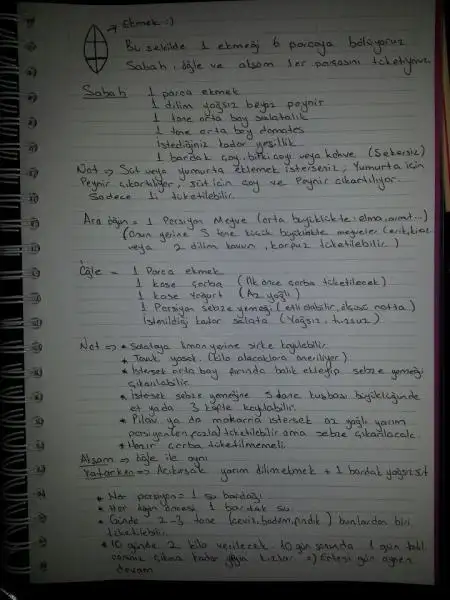 → Ekmek :)
Bu şekilde 1 ekmeği 6 parçaya bölüyoruz
Sabah, öğle ve akşam 1er parçasını tüketiyoruz.
Sabah 1 parça ekmek
1 dilim yağsız beyaz peynir
1 tane orta boy salatalık
1 tane orta boy domates
İstediğiniz kadar yeşillik
1 bardak çay, bitki çayı veya kahve (Şekersiz)
Not ⇒ Süt veya yumurta eklemek isterseniz; Yumurta için
Peynir çıkartılıyor, süt için çay ve Peynir çıkartılıyor.
Sadece 1i tüketilebilir
Ara öğün = 1 Porsiyon Meyve (orta büyüklükte: elma, armut...)
(Onun yerine 5 tane küçük büyüklükte meyveler (erik, kiraz
veya 2 dilim kavun, karpuz tüketilebilir)
Öğle = 1 Parça ekmek
1 kase çorba (İlk önce çorba tüketilecek)
1 kase Yoğurt (Az yağlı)
1 Porsiyon sebze yemeği (etli olabilir,
İstenildiği kadar salata (Yağsız, tuzsuz)
Not ⇒ * Salataya limon yerine sirke koyulabilir
* Tavuk yasak. (kilo alacaklara öneriliyor)
* İstersek orta boy fırında balık ekleyip sebze yemeği
çıkarılabilir.
* İstersek sebze yemeğine 5 tane kuşbaşı büyüklüğünde
et ya da 3 köfte koyulabilir.
* Pilav ya da makarna istersek az yağlı yarım
porsiyon tüketilebilir ama sebze çıkarılacak.
* Hazır çorba tüketilmemeli.
Akşam ⇒ öğle ile aynı
Yatarken ⇒ Acıkırsak yarım dilim ekmek + 1 bardak yağsız süt
* Her porsiyon = 1 su bardağı
* Her öğün öncesi 1 bardak su
* Günde 2-3 tane (ceviz, badem, fındık) bunlardan biri
tüketilebilir.
* 10 günde 2 kilo verilecek. 10 gün sonunda 1 gün tatil
canınız çıkana kadar yiyin kızlar :) Ertesi gün aynen
devam